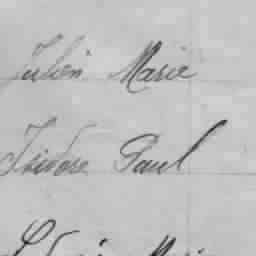 Julien Marie
Isidore Paul